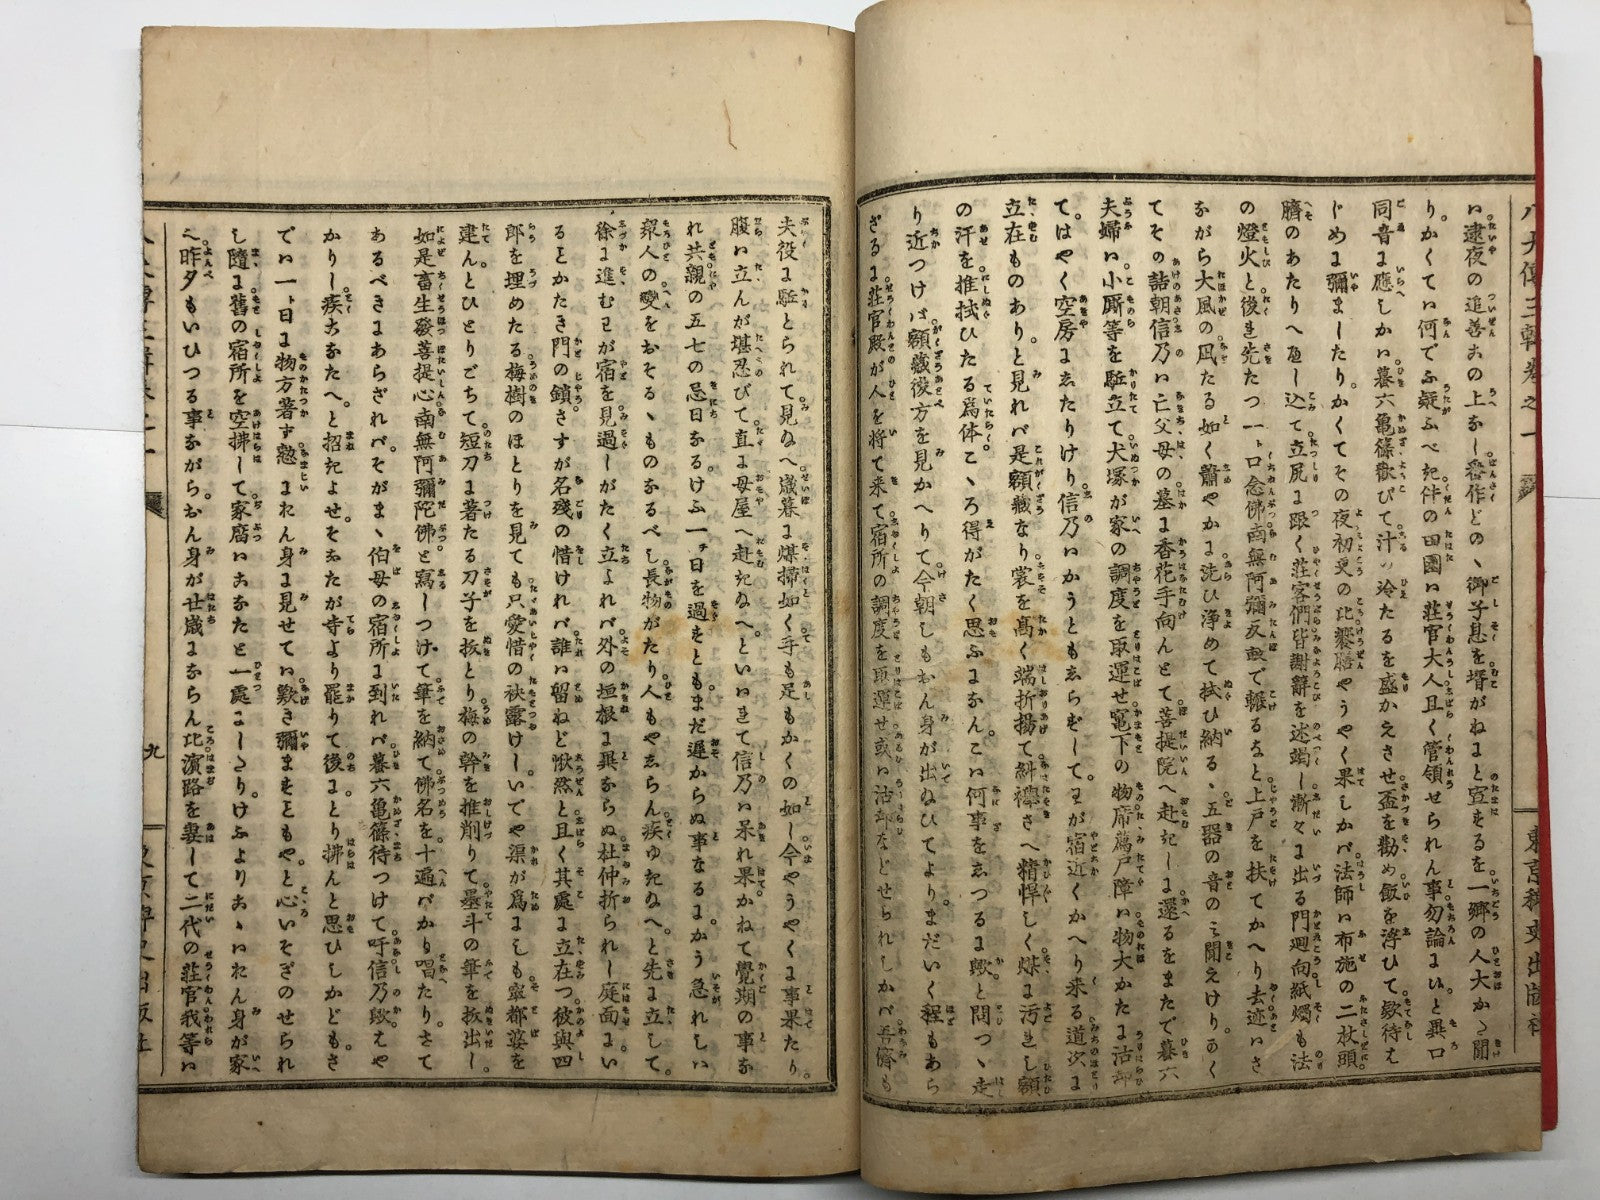 い逮夜の追善あの上なし番作どのゝ御子息を壻がねにと宣するを一郷の人大かた聞
り。かくてい何でふ疑ふべき件の田園い莊官大人且く管領せられん事勿論にいと異口
同音に應しかい蟇六龜篠歡びて汁の冷たるを盛かえさせ盃を勸め飯を薄ひて欵待え
じめに彌ましたり。かくてその夜初更の比饗膳やうやく果しかバ法師い布施の二枚頭
臍のあたりへ押し込て立尻に跟く莊客們皆謝辭を述竭し漸々に出る門廻向紙燭も法
の燈火と後れ先たつ一ト口念佛南無阿彌反畝で離るなと上戸を扶てかへり去迹いさ
ながら大風の凪たる如く蕭やかに洗ひ淨めて拭ひ納る、五器の音のミ聞えけり。かく
てその詰朝信乃い亡父母の墓に香花手向んとて菩提院へ赴きしに還るをまたで蟇六
夫婦い小厮等を駈立て犬塚が家の調度を取運せ竃下の物席薦戸障い物大かたに沽却
てはやく空房にゑたりけり信乃いかうともゑらずして。わが宿近くかへり來る道次に
立在ものありと見れバ是額藏なり裳を高く端折揚て糾襷さへ精悍しく煤に汚れし額
の汗を推拭ひたる爲体こゝろ得がたく思ふになんこい何事をゑつるに歟。と問つゝ走
り近つけば額藏後方を見かへりて今朝しもおん身が出ぬひてより。まだいく程もあら
ざるに莊官殿が人を將て来て宿所の調度を取運せ或い沽却などせられしかバ吾儕も
夫役に駈とられて見ぬへ歳暮に煤掃如く手も足もかくの如し今やうやくに事果たり。
腹い立んが堪忍びて直に母屋へ赴きぬへ。といいれて信乃い呆れ果かねて覺期の事な
れ共親の五七の忌日なるけふ一ト日を過すともまだ遲からぬ事なるにかう急れしい
衆人の變をおそるゝものなるべし長物がたり人もやゑらん疾ゆきぬへ。と先に立して。
徐に進むわが宿を見過しがたく立よれバ外の垣根に異ならぬ杜仲折られし庭面にい
るとかたき門の鎖さすが名殘の惜けれバ誰い留ねど愀然と且く其處に立在つ彼與四
郎を埋めたる梅樹のほとりを見ても只愛惜の袂露けしいでや渠が爲にしも率都婆を
建んとひとりごちて短刀に著たる刀子を抜とり梅の幹を推削りて墨斗の筆を拔出し。
如是畜生發菩提心南無阿彌陀佛と寫しつけて筆を納て佛名を。十遍バかり唱たり。さて
あるべきにあらざれバそがまゝ伯母の宿所に到れバ蟇六龜篠待つけて吁信乃歟えや
かりし疾あなたへ。と招きよせ。そなたが寺より罷りて後にとり拂んと思ひしかどもさ
でい一ト日に物方著ず憖にわれん身に見せてい歎き彌ますともや。と心いそぎのせられ
し隨に舊の宿所を空拂して家廢いあなたと一處にしたり。けふよりあゝいわれん身が家
へ昨夕もいひつる事ながら。おん身が廿歳にならん比濱路を妻して二代の莊官我等い
九